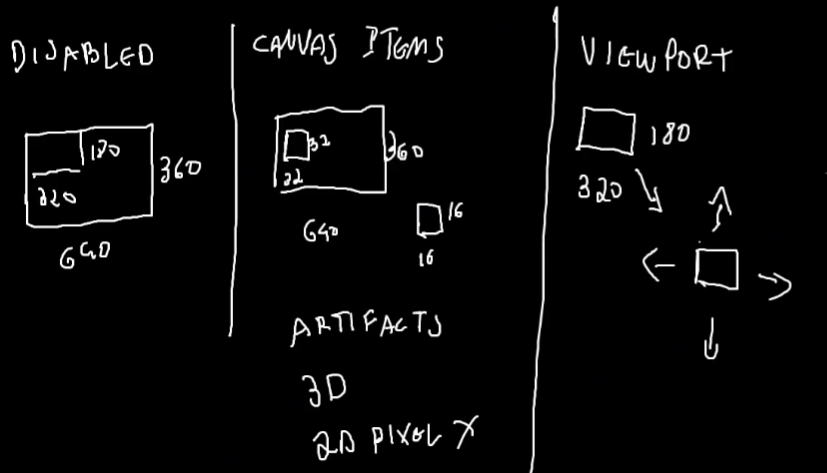 DISABLED
180
320
360
640
CANVAS ITEMS
32
32
360
640
16
16
ARTIFACTS
3D
2D PIXEL X
VIEWPORT
180
320